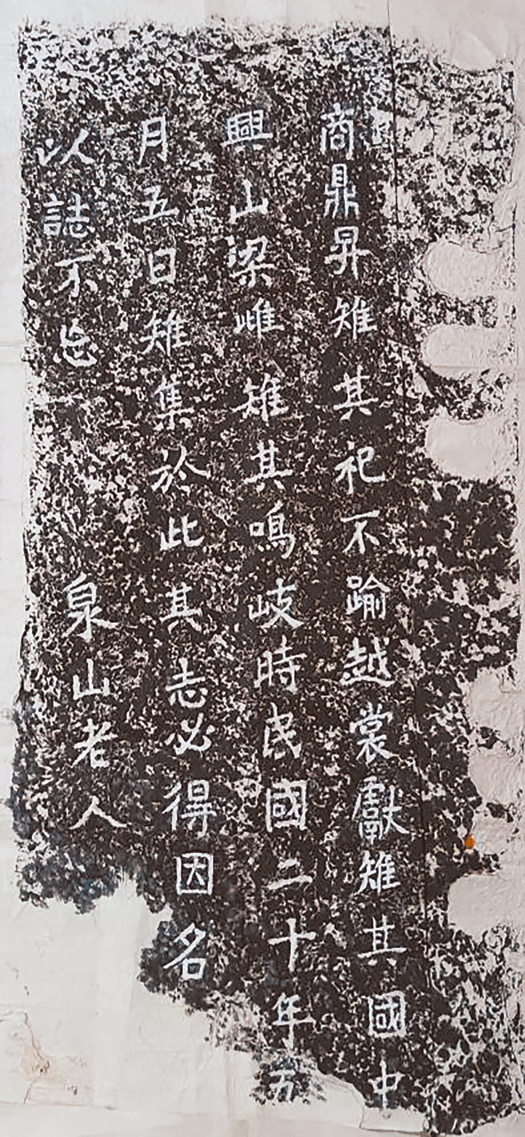 商鼎昇雉其祀不踰越裳獻雉其國中
興山梁雌雉其鳴岐時民國二十年五
月五日雉集於此其志必得因名
以誌不忘 泉山老人